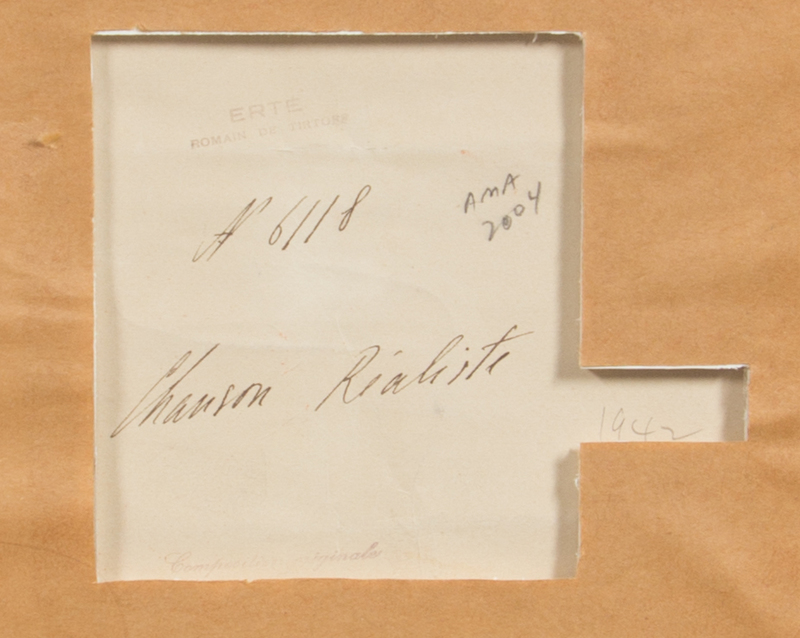 ERTE
ROMAIN DE TIRTOFF
N 6118
AMA
2004
Chanson Réaliste
1942
Composition originale